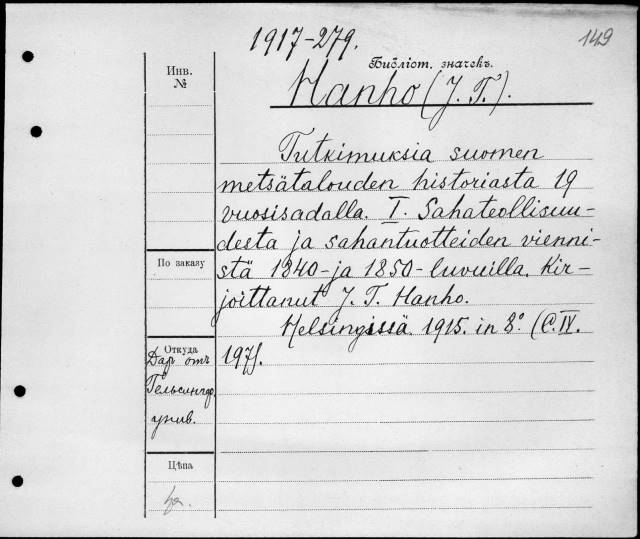 1917-279.
149
Инв. №
Библіот. значекъ.
Hanho (J. T.).
Tutkimuksia suomen
metsätalouden historiasta 19
vuosisadalla. I. Sahateollisuu-
desta ja sahantuotteiden vienni-
stä 1840- ja 1850-luvuilla. Kir-
joittanut J. T. Hanho.
Helsingissä 1915. in 8° (C. IV.
197).
По заказу
Откуда
Даръ отъ
Гельсингф.
унив.
Цѣна